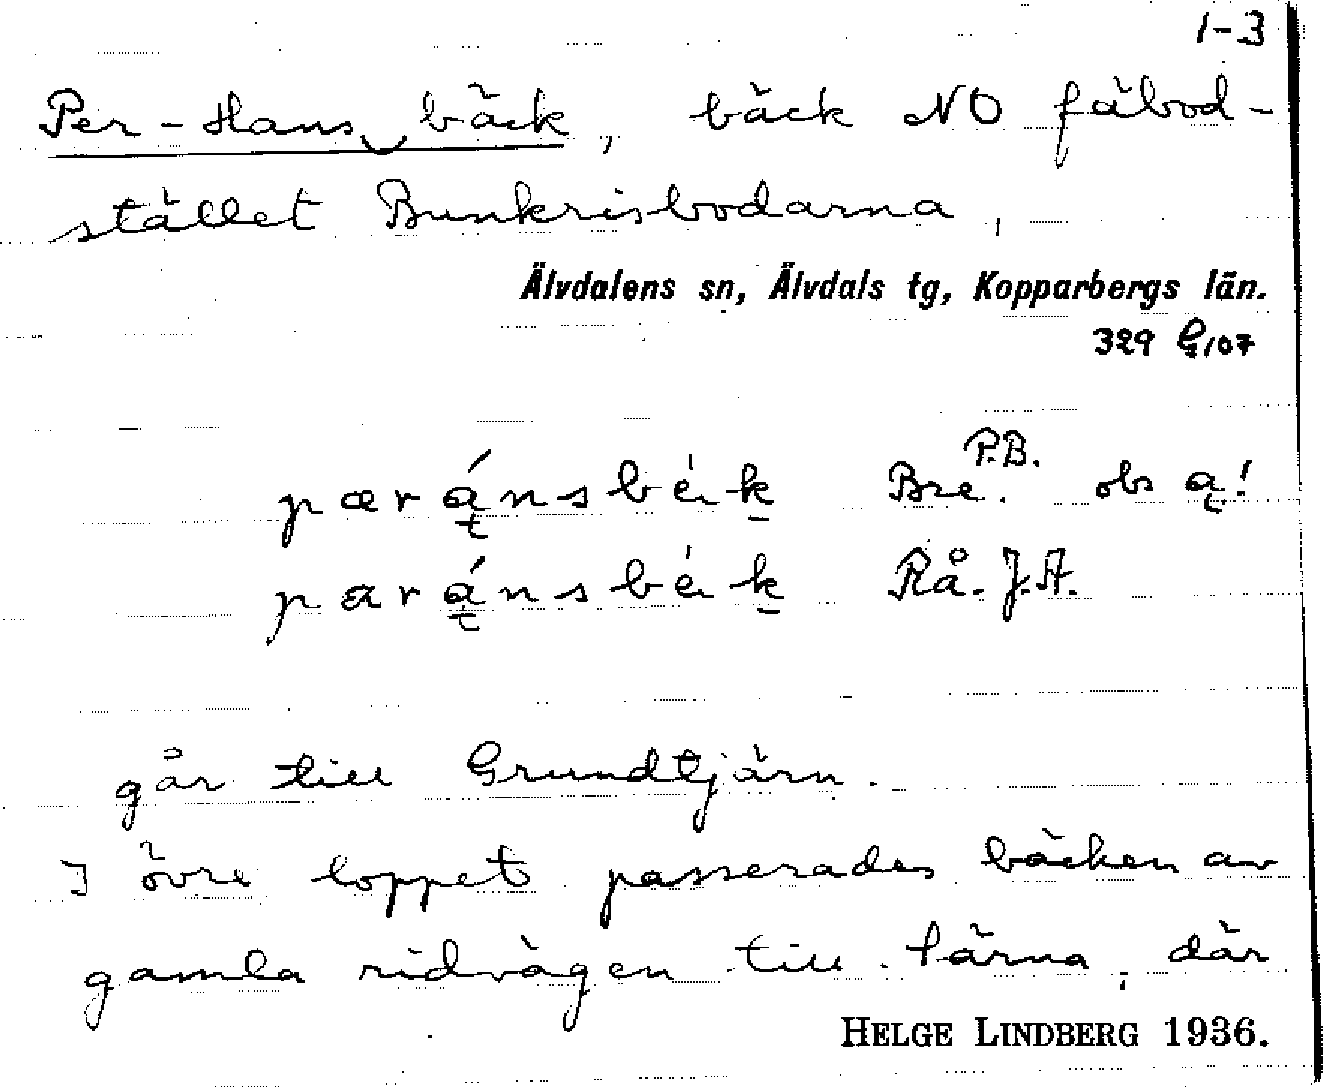 1-3
Per-Hans‿bäck, bäck NO fäbod-
stället Bunkrisbodarna,
Älvdalens sn, Älvdals tg, Kopparbergs län.
329 G107
P.B.
pærą́nsbék Bre. obs ą!
parą́nsbék Rå. J.A.
går till Grundtjärn.
I övre loppet passerades bäcken av
gamla ridvägen till Särna, där
HELGE LINDBERG 1936.